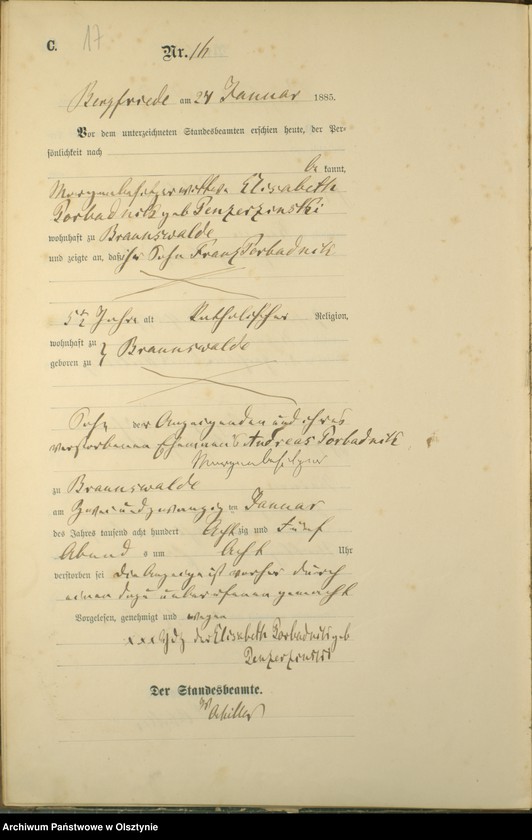 C. 17
Nr. 16
Bergfriede am 24 Januar 1885.
Vor dem unterzeichneten Standesbeamten erschien heute, der Per-
sönlichkeit nach
be kannt,
Morgenbesitzerwittwe Elisabeth
Torbadnik geb Penzerzinski
wohnhaft zu Braunswalde
und zeigte an, daß ihr Sohn Franz Torbadnik
5 1/2 Jahre alt katholischer Religion,
wohnhaft zu
geboren zu } Braunswalde
Sohn der Anzeigenden und ihres
verstorbenen Ehemannes Andreas Torbadnik
Morgenbesitzer
zu Braunswalde
am zwei und zwanzig ten Januar
des Jahres tausend acht hundert Acht zig und Fünf
Abend s um Acht Uhr
verstorben sei die Anzeige ist vorher durch
einen dazu unberufenen gemacht
Vorgelesen, genehmigt und wegen
xxx Hdz der Elisabeth Torbadnik geb
Penzerzinski
Der Standesbeamte.
Schiller
Archiwum Państwowe w Olsztynie